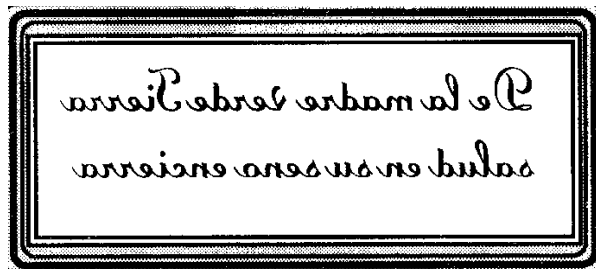 De la madre verde Tierra
salud en su seno encierra